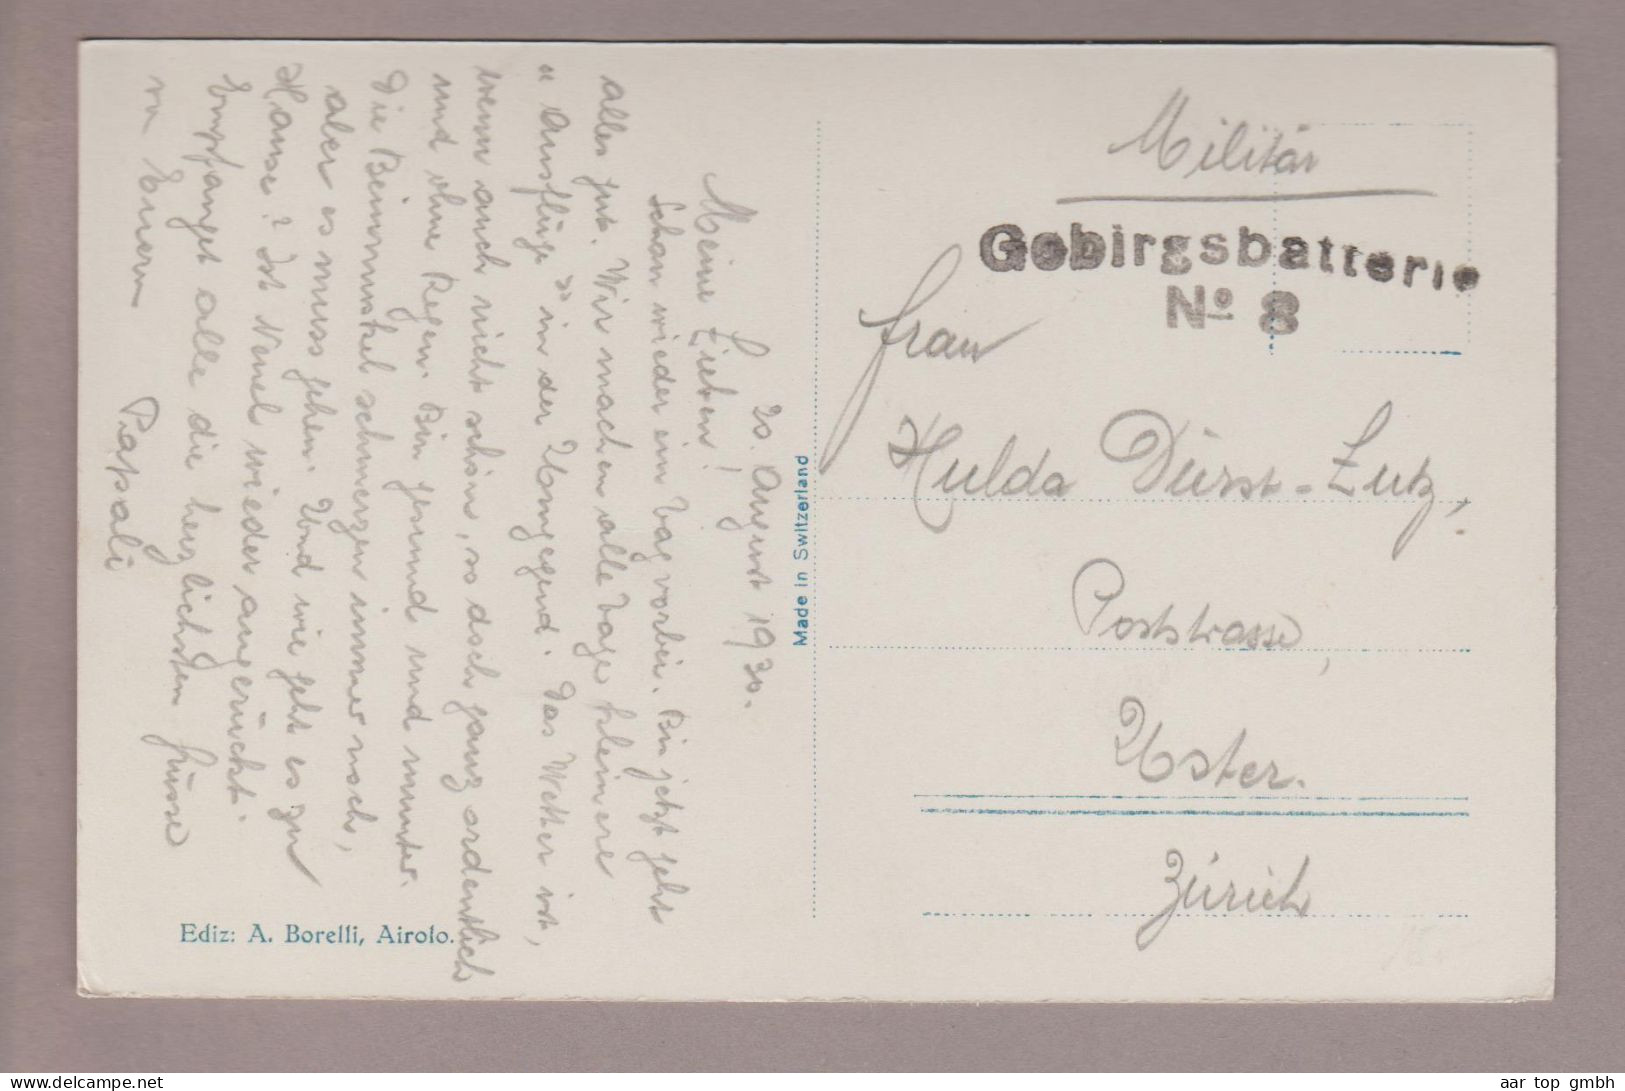 20. August 1930.
Meine Lieben!
Schon wieder ein Tag vorbei. Bin jetzt geht
alles gut. Wir machen alle Tage kleinere
"Ausflüge" in der Umgegend. Das Wetter ist,
wenn auch nicht schön, so doch ganz ordentlich
und ohne Regen. Bin gesund und munter.
Die Beinmuskel schmerzen immer noch,
aber es muss gehen. Und wie geht es zu
Hause? Ist Neuel wieder angerückt.
Empfanget alle die herzlichsten Grüsse
von Euerm Papali
Ediz: A. Borelli, Airolo.
Made in Switzerland
Militär
Gebirgsbatterie
No 8
Frau
Hulda Dürst-Lutz,
Poststrasse,
Uster.
Zürich
aar top gmbh